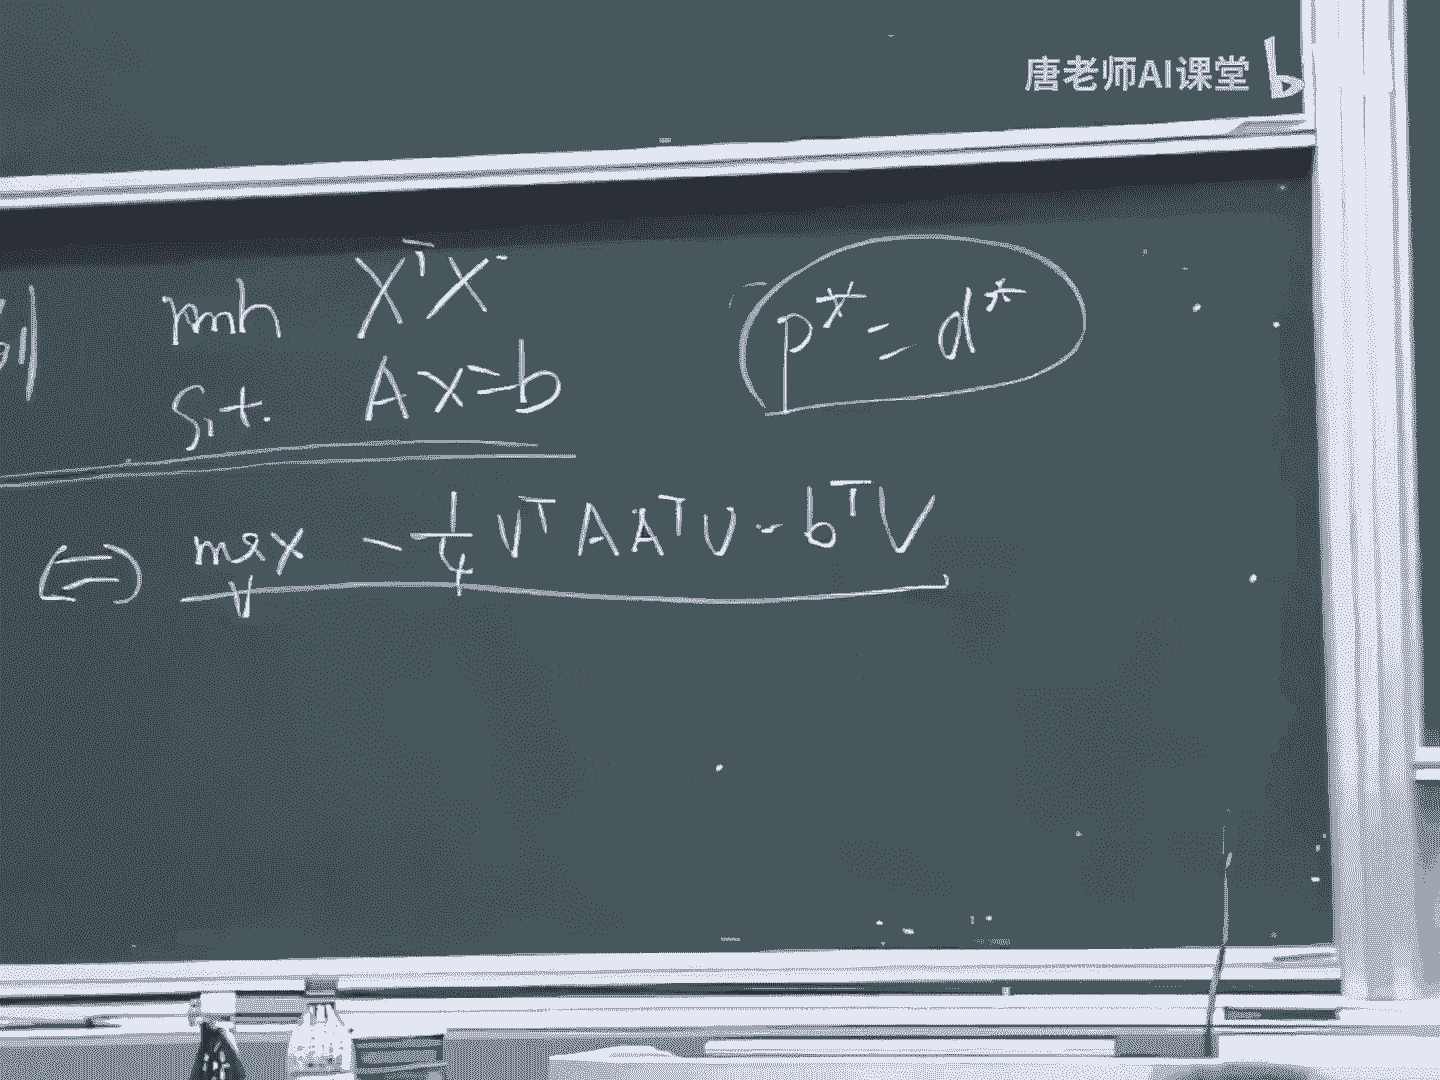 唐老师AI课堂 b
例 min XᵀX
s.t. AX=b
P* = d*
(=) max -1/4 VᵀAAᵀV - bᵀV
V